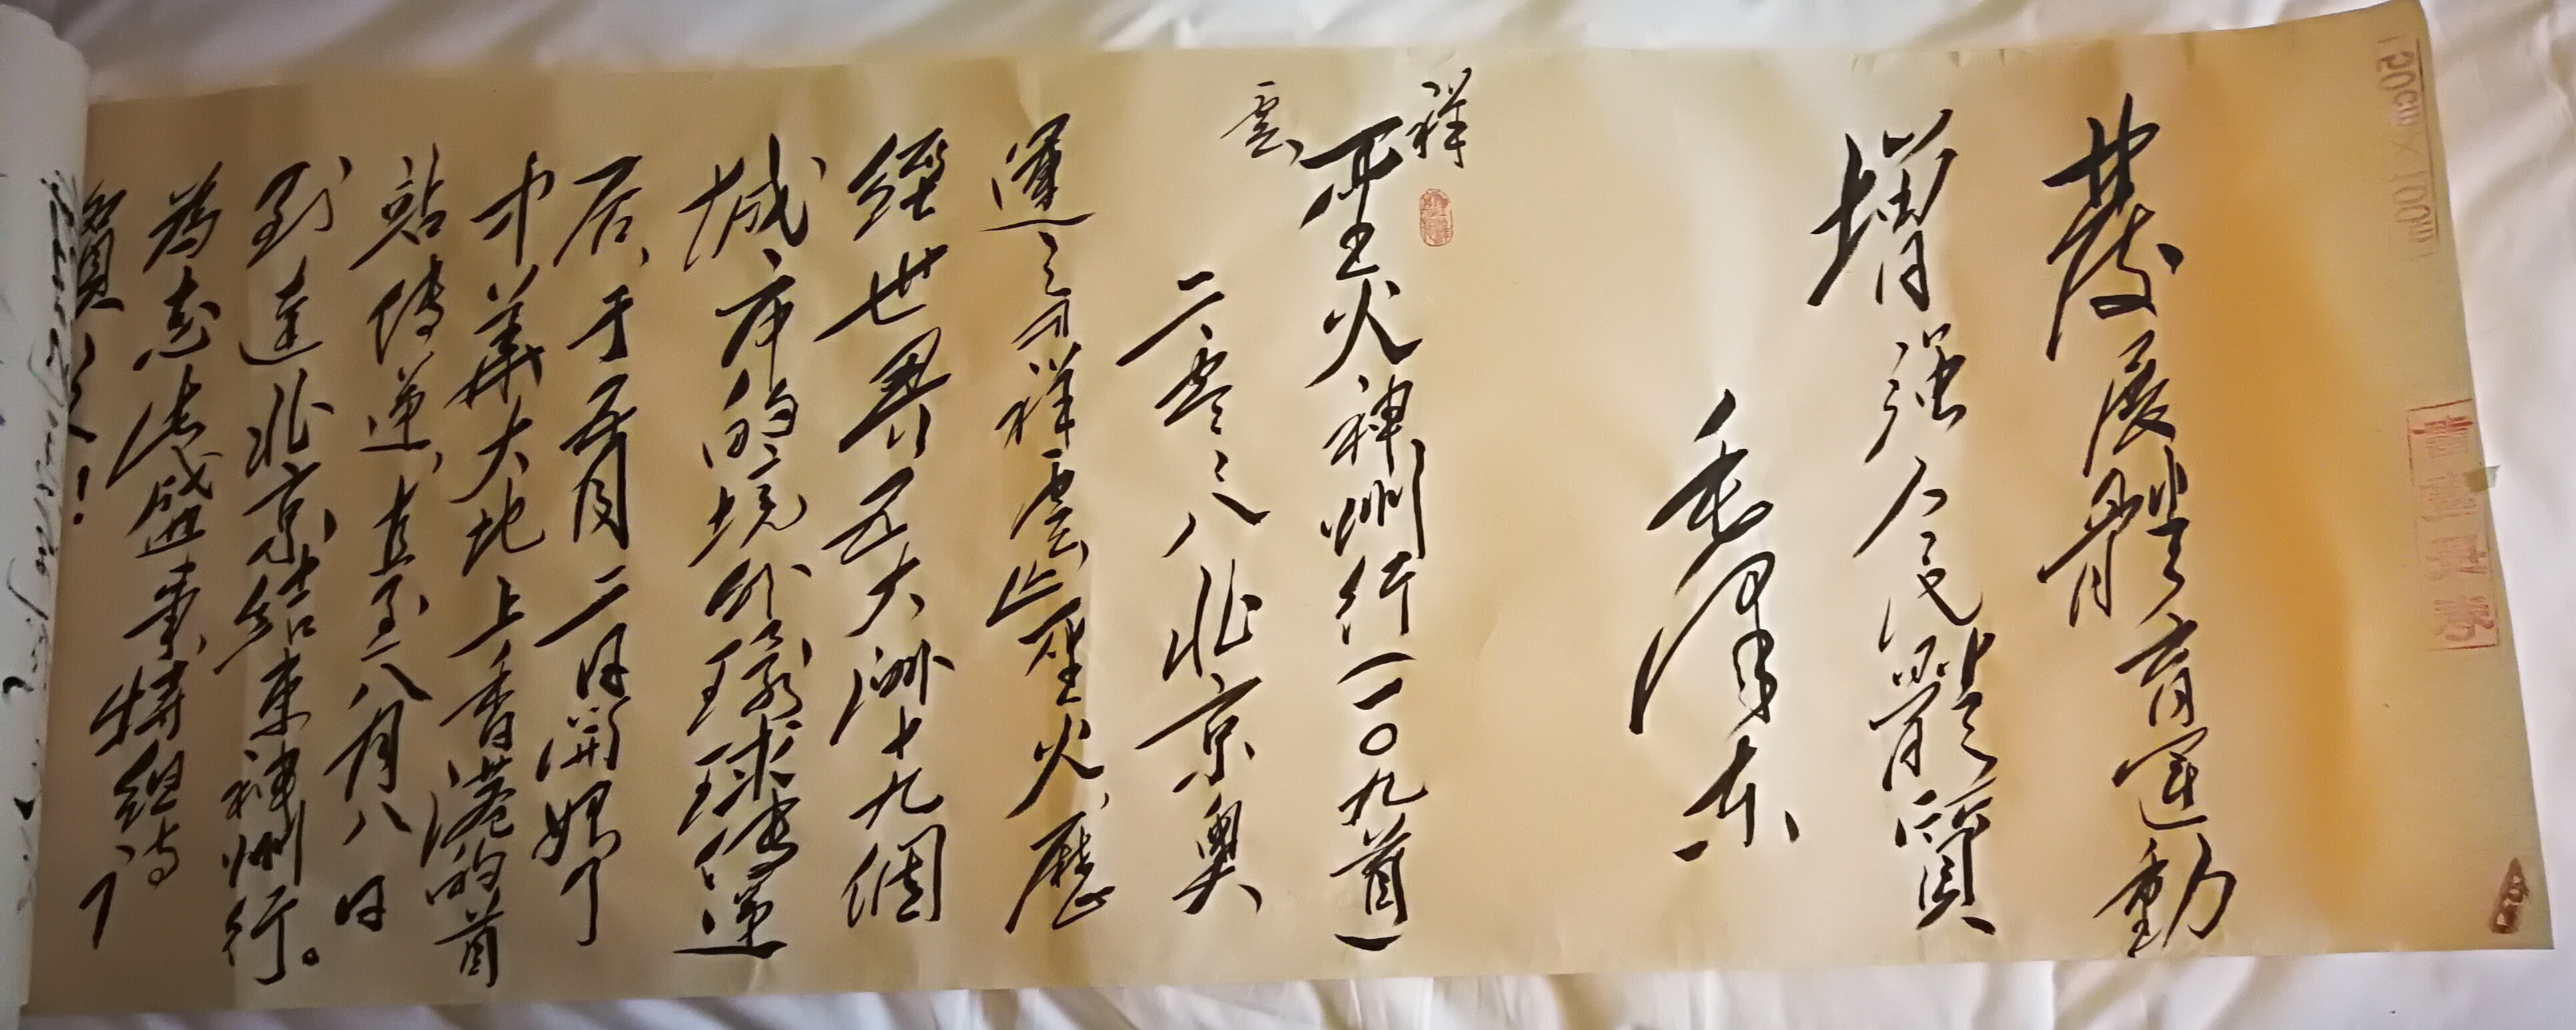 150cm×100m
發展體育運動
增强人民體質
毛澤東
祥
雲
聖火神州行(一〇九首)
二零零八北京奧
運之
祥雲
聖火,歷
經世界五大洲十九個
城市的境外環球傳遞
后,于五月二日開始了
中華大地上香港的首
站傳遞,直至八月八日
到達北京結束神州行。
為志此盛事,特組詩
賀之!